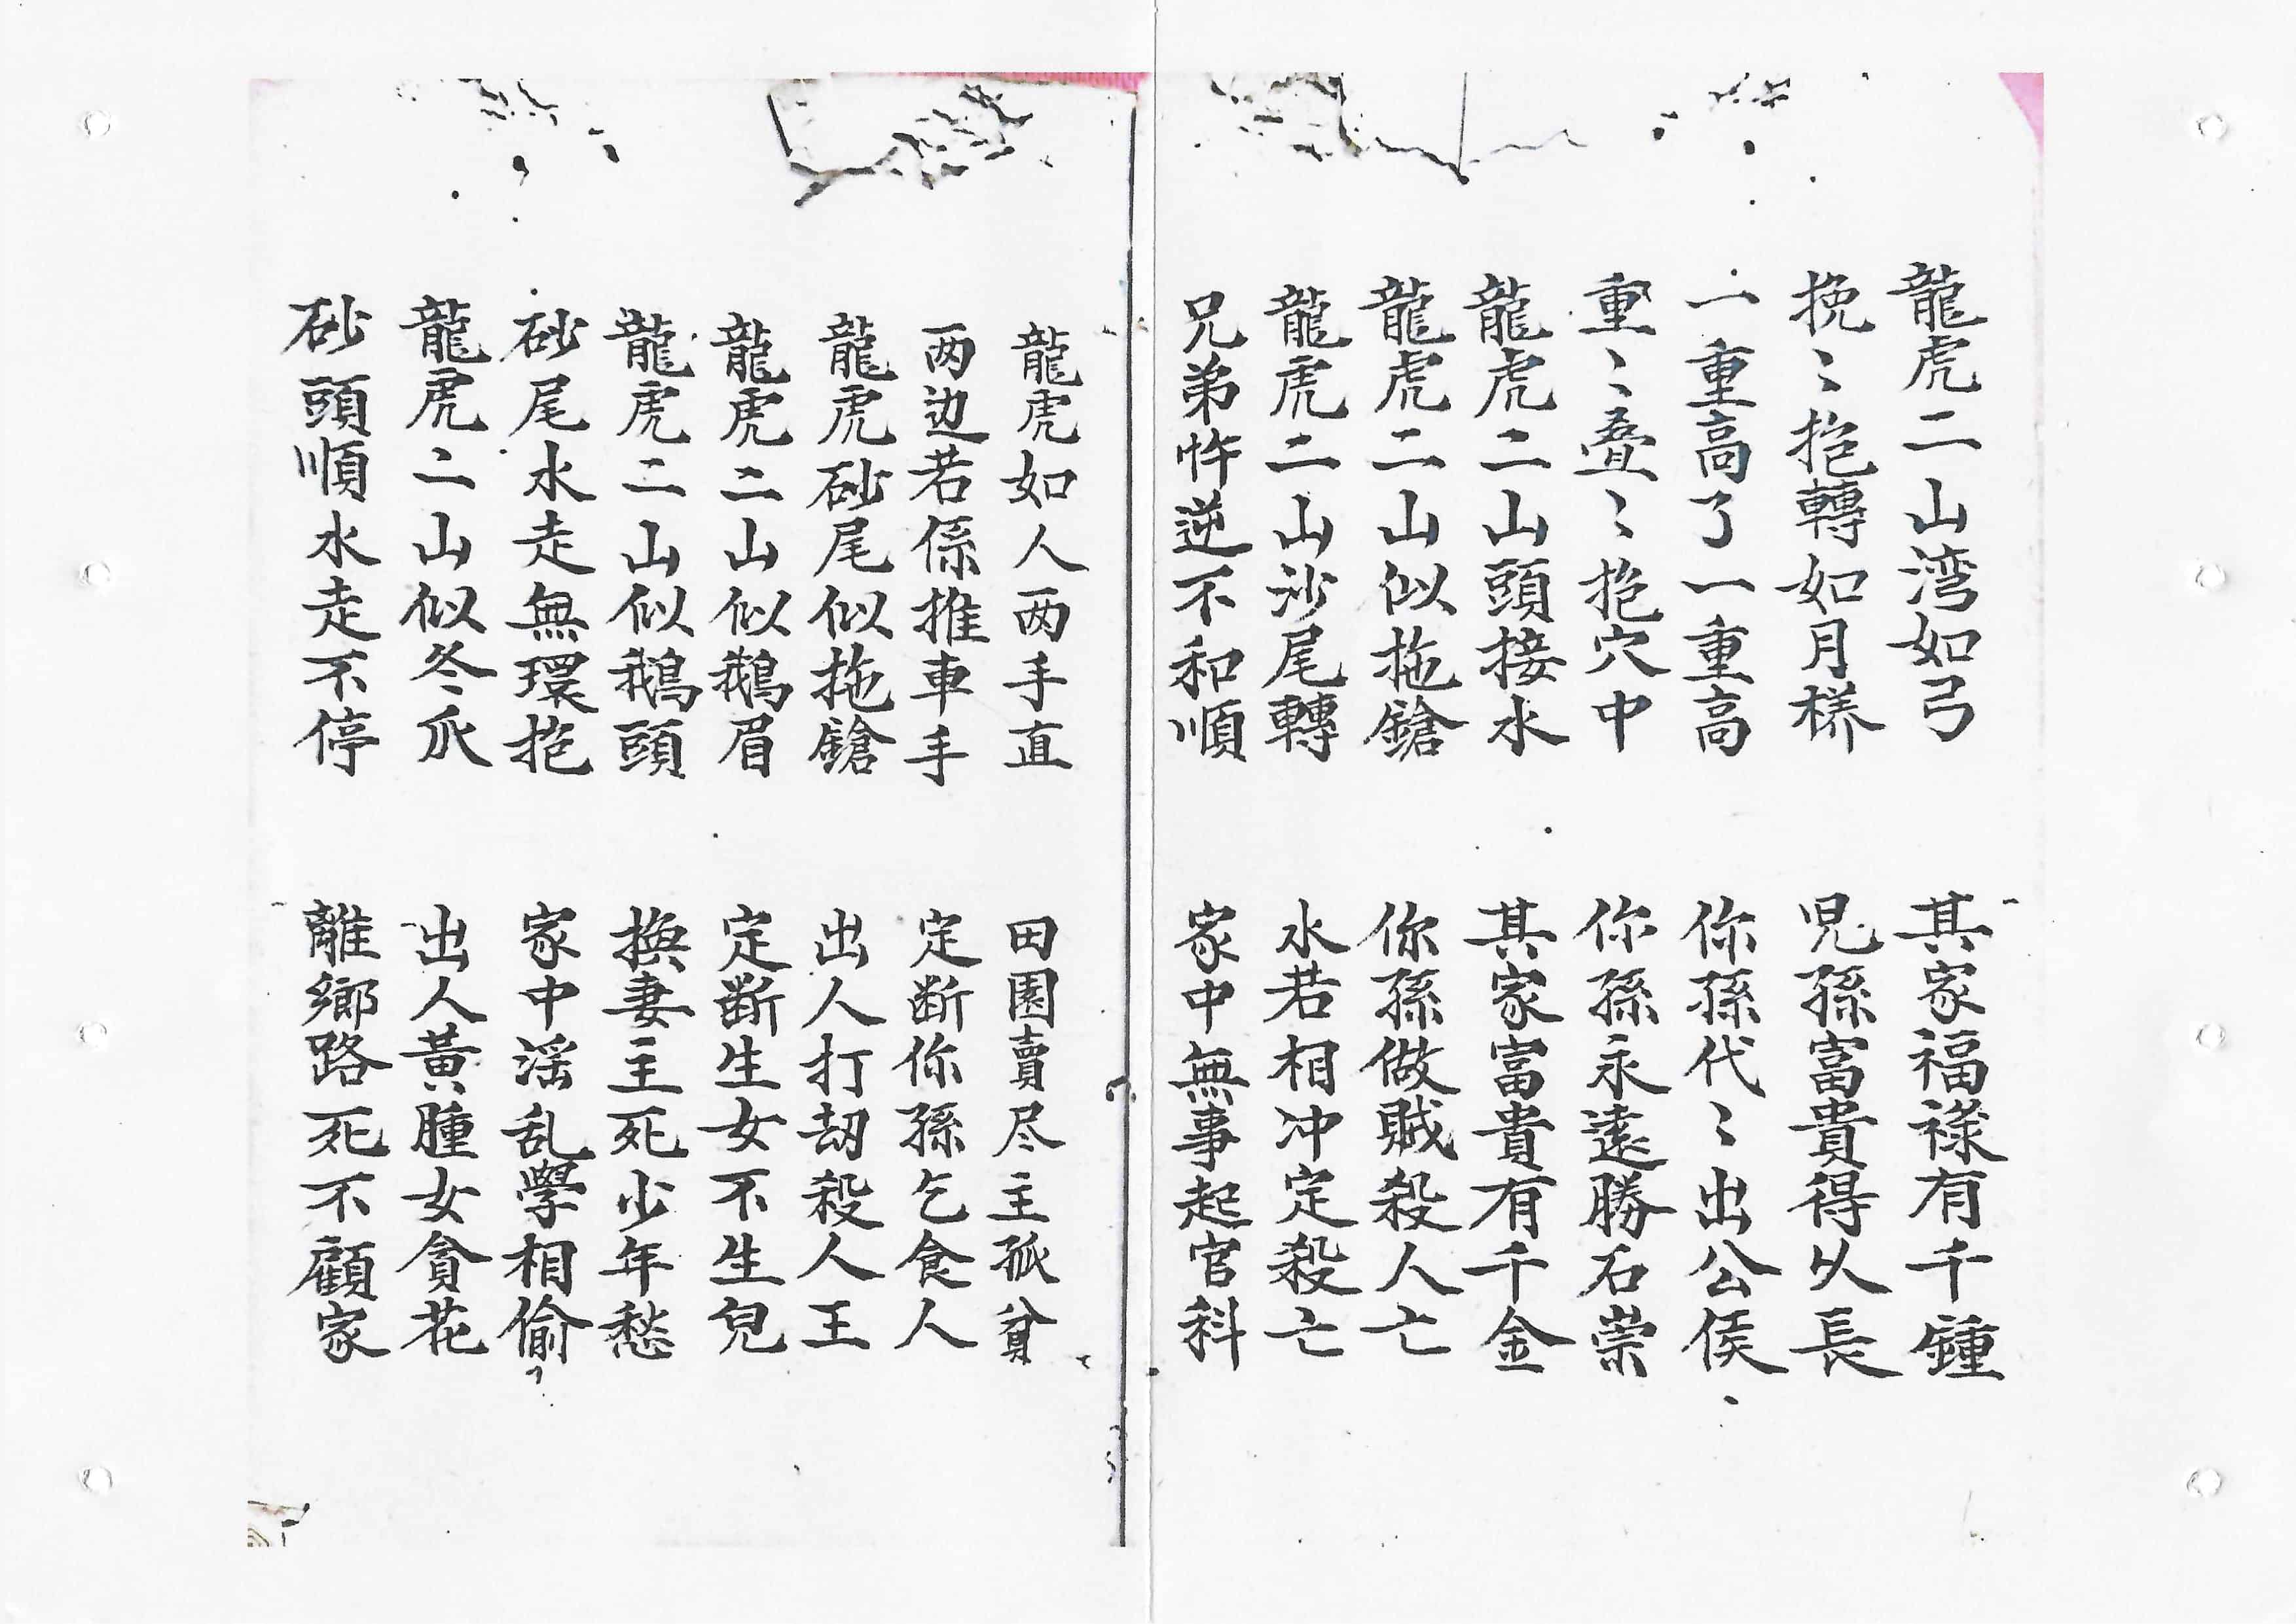 龍虎二山湾如弓　其家福祿有千鍾
挽〻抱轉如月樣　児孫富貴得久長
一重高了一重高　你孫代〻出公侯
重〻叠〻抱穴中　你孫永遠勝石崇
龍虎二山頭接水　其家富貴有千金
龍虎二山似拖鎗　你孫做賊殺人亡
龍虎二山沙尾轉　水若相冲定殺亡
兄弟忤逆不和順　家中無事起官科
龍虎如人两手直　田園賣尽主孤貧
两边若係推車手　定断你孫乞食人
龍虎砂尾似拖鎗　出人打劫殺人王
龍虎二山似鵝眉　定断生女不生兒
龍虎二山似鵝頭　換妻主死少年愁
砂尾水走無環抱　家中滛乱學相偷
龍虎二山似冬瓜　出人黃腫女貪花
砂頭順水走不停　離鄉路死不顧家